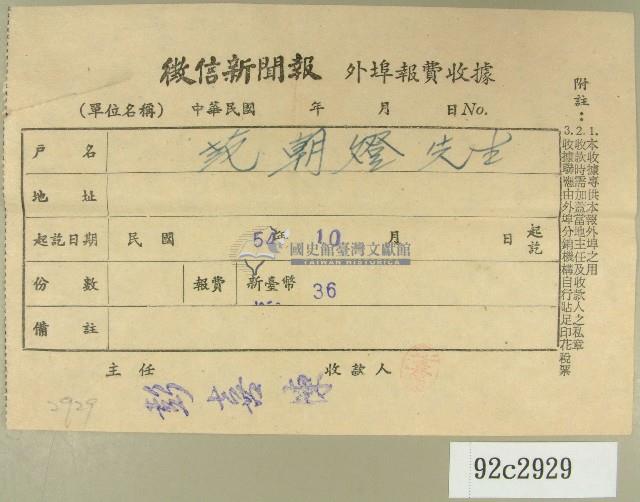 徵信新聞報 外埠報費收據
(單位名稱) 中華民國 年 月 日 No.
戶名 朝燈先生
地址
起訖日期 民國 52年 10月 日 起訖
國史館臺灣文獻館
TAIWAN HISTORICA
份數 報費 新臺幣 36
備註
主任 收款人
2929
附註：
1.本收據專供本報外埠之用
2.收款時需加蓋當地主任及收款人之私章
3.收據聯應由外埠分銷機構自行貼足印花稅票
92c2929